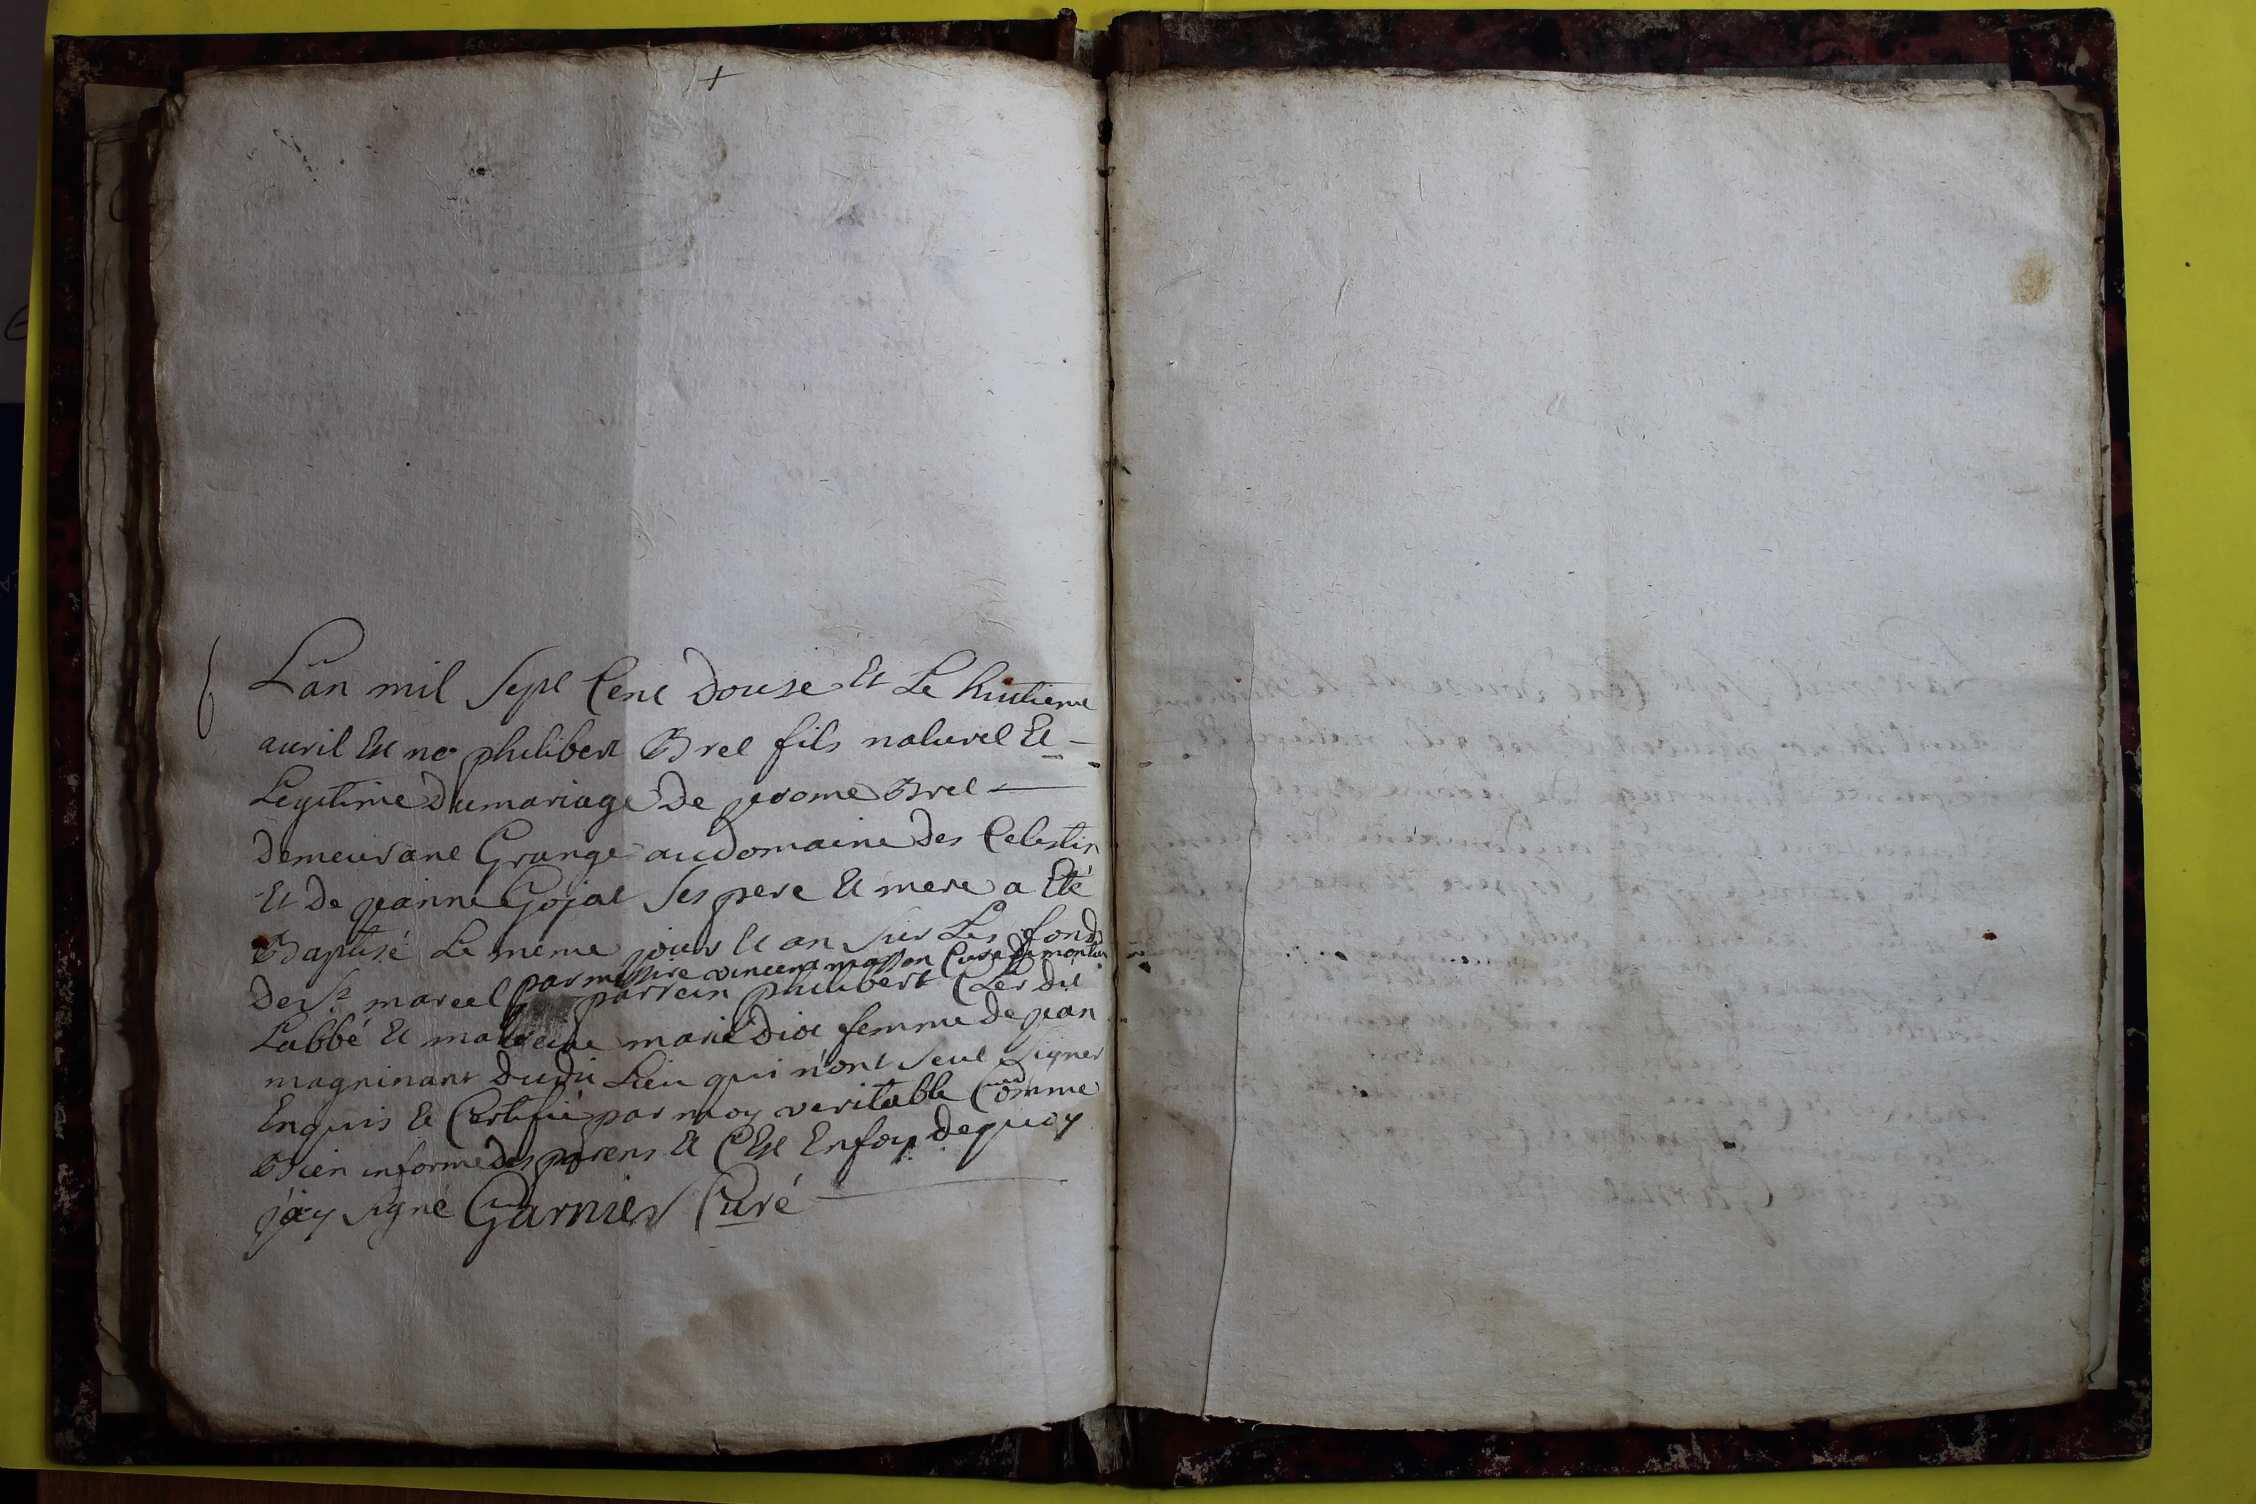 +
L'an mil sept Cent douse et Le huitieme
auril Est né philibert Brel fils naturel Et
Legitime du mariage de jerome Brel
demeurant Grange au domaine des Celestin
Et de jeanne Gojat ses pere Et mere a Eté
Baptisé Le meme jour et an sur Les fonds
de St marcel par messire vincent masson Curé de
parrein philibert Cler dit
Labbé Et marreine marie diot femme de jean
magninant dudit Lieu qui n'ont seut signer
Enquis Et Certifié par moy veritable Comme
Bien informé des parens Et C'Est Enfoy dequoy
j'ay signé Garnier Curé